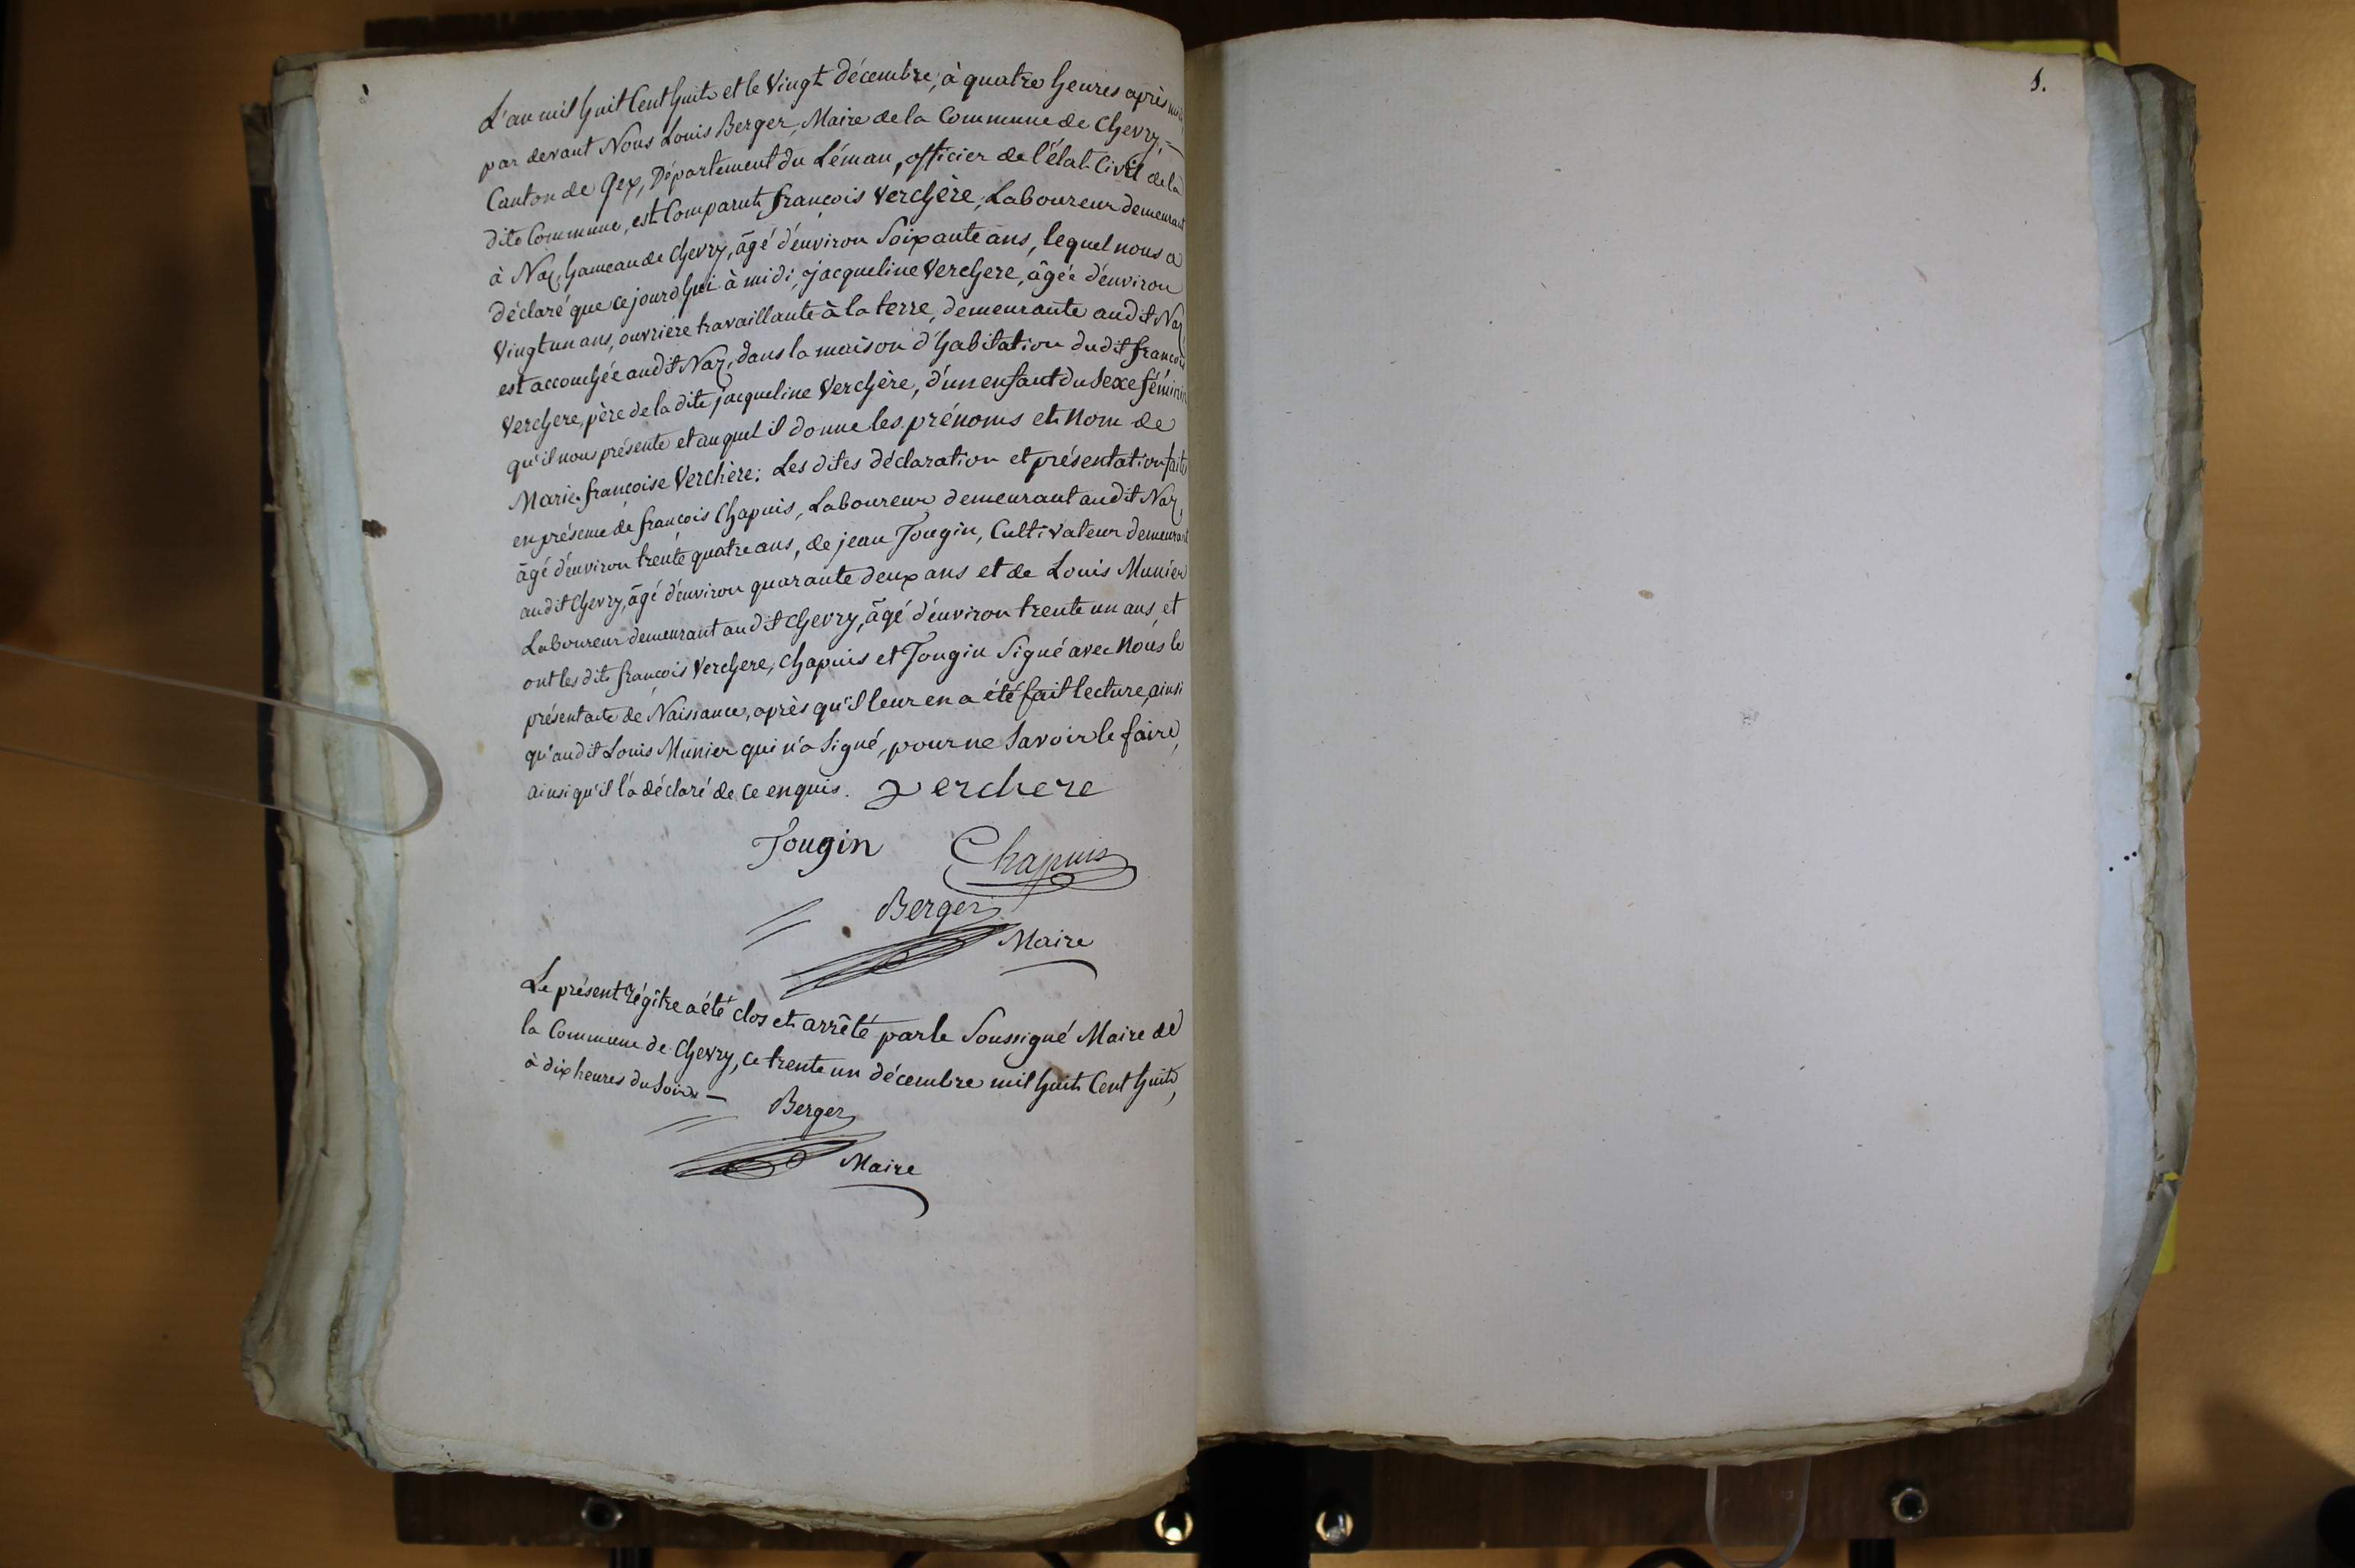 L'an mil huit Cent huit et le Vingt décembre, à quatre heures après midi,
par devant Nous Louis Berger, Maire de la Commune de Chevry,
Canton de Gex, Département du Léman, officier de l'état Civil de la
dite Commune, est Comparut françois Verchère, Laboureur demeurant
à Naz, hameau de Chevry, âgé d'environ Soixante ans, lequel nous a
déclaré que ce jourd'hui à midi, jacqueline Verchere, âgée d'environ
Vingt un ans, ouvrière travaillante à la terre, demeurante audit Naz
est accouchée audit Naz, dans la maison d'habitation dudit françois
Verchere, père de la dite jacqueline Verchère, d'un enfant du Sexe féminin
qu'il nous présente et auquel il donne les prénoms et Nom de
Marie françoise Verchère: Les dites déclaration et présentation faites
en présence de françois Chapuis, Laboureur demeurant audit Naz,
âgé d'environ trente quatre ans, de jean Jougin, Cultivateur demeurant
audit Chevry, âgé d'environ quarante deux ans et de Louis Munier
Laboureur demeurant audit Chevry, âgé d'environ trente un ans, et
ont les dits françois Verchere, Chapuis et Jougin Signé avec Nous le
présent acte de Naissance, après qu'il leur en a été fait lecture, ainsi
qu'audit Louis Munier qui n'a Signé, pour ne Savoir le faire,
ainsi qu'il l'a déclaré de ce enquis. Verchere
Jougin Chapuis
Berger
Maire
Le présent régître a été clos et arrêté par le Soussigné Maire de
la Commune de Chevry, ce trente un décembre mil huit Cent huit,
à dix heures du Soir.
Berger
Maire